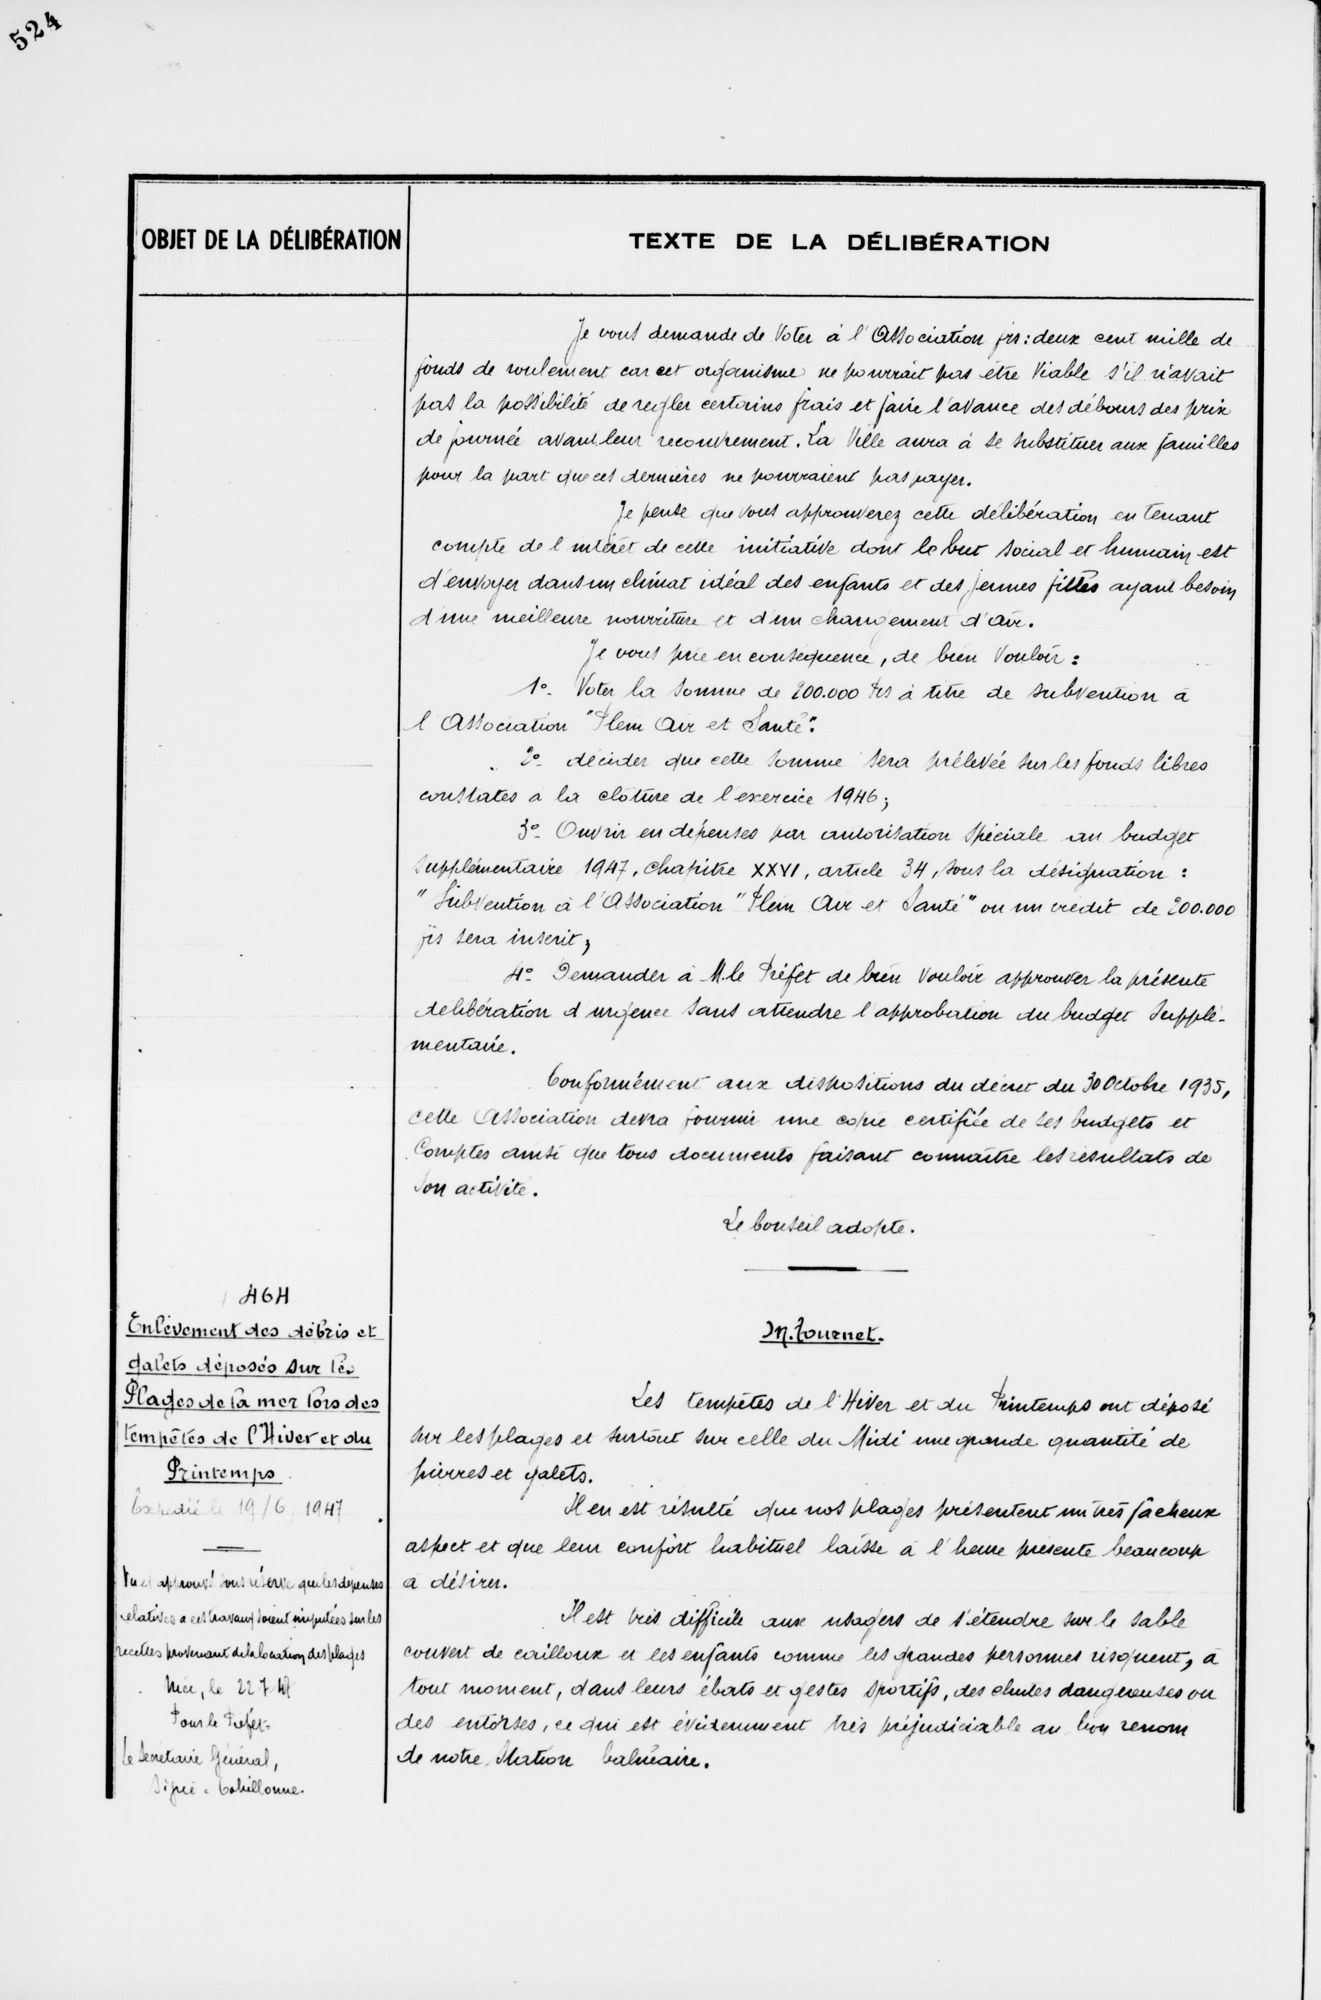 524
OBJET DE LA DÉLIBÉRATION
TEXTE DE LA DÉLIBÉRATION
Je vous demande de voter à l'Association frs : deux cent mille de
fonds de roulement car cet organisme ne pourrait pas être viable s'il n'avait
pas la possibilité de regler certains frais et faire l'avance des débours des prix
de journée avant leur recouvrement. La Ville aura à se substituer aux familles
pour la part que ces dernières ne pourraient pas payer.
Je pense que vous approuverez cette délibération en tenant
compte de l'intérêt de cette initiative dont le but social et humain est
d'envoyer dans un climat idéal des enfants et des jeunes filles ayant besoin
d'une meilleure nourriture et d'un changement d'air.
Je vous prie en conséquence, de bien vouloir :
1°- Voter la somme de 200.000 frs à titre de subvention à
l'Association "Plein Air et Santé".
2°- décider que cette somme sera prélevée sur les fonds libres
constatés à la clôture de l'exercice 1946;
3°- Ouvrir en dépenses par autorisation spéciale au budget
supplémentaire 1947, chapitre XXVI, article 34, sous la désignation :
"Subvention à l'Association "Plein Air et Santé" ou un crédit de 200.000
frs sera inscrit;
4°- Demander à M. le Préfet de bien vouloir approuver la présente
delibération d'urgence sans attendre l'approbation du budget supplé-
mentaire.
Conformément aux dispositions du décret du 30 Octobre 1935,
cette Association devra fournir une copie certifiée de ses budgets et
Comptes ainsi que tous documents faisant connaître les résultats de
son activité.
Le Conseil adopte.
464
Enlèvement des débris et
galets déposés sur les
Plages de la mer lors des
tempêtes de l'Hiver et du
Printemps
Expédié le 19/6/1947
Vu et approuvé sous réserve que les dépenses
relatives à ces travaux soient imputées sur les
recettes provenant de la location des plages
Nice, le 22 7 47
Pour le Préfet-
Le Secrétaire Général,
Signé :
M. Tournet.
Les tempêtes de l'Hiver et du Printemps ont déposé
sur les plages et surtout sur celle du Midi une grande quantité de
pierres et galets.
Il en est résulté que nos plages présentent un très fâcheux
aspect et que leur confort habituel laisse à l'heure présente beaucoup
à désirer.
Il est très difficile aux usagers de s'étendre sur le sable
couvert de cailloux et les enfants comme les grandes personnes risquent, à
tout moment, dans leurs ébats et gestes sportifs, des chutes dangereuses ou
des entorses, ce qui est évidemment très préjudiciable au bon renom
de notre Station balnéaire.